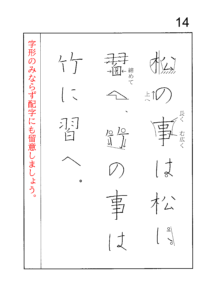 14
松の事は松に
習へ、竹の事は
竹に習へ。
長く
右広く
上へ
締めて
字形のみならず配字にも留意しましょう。